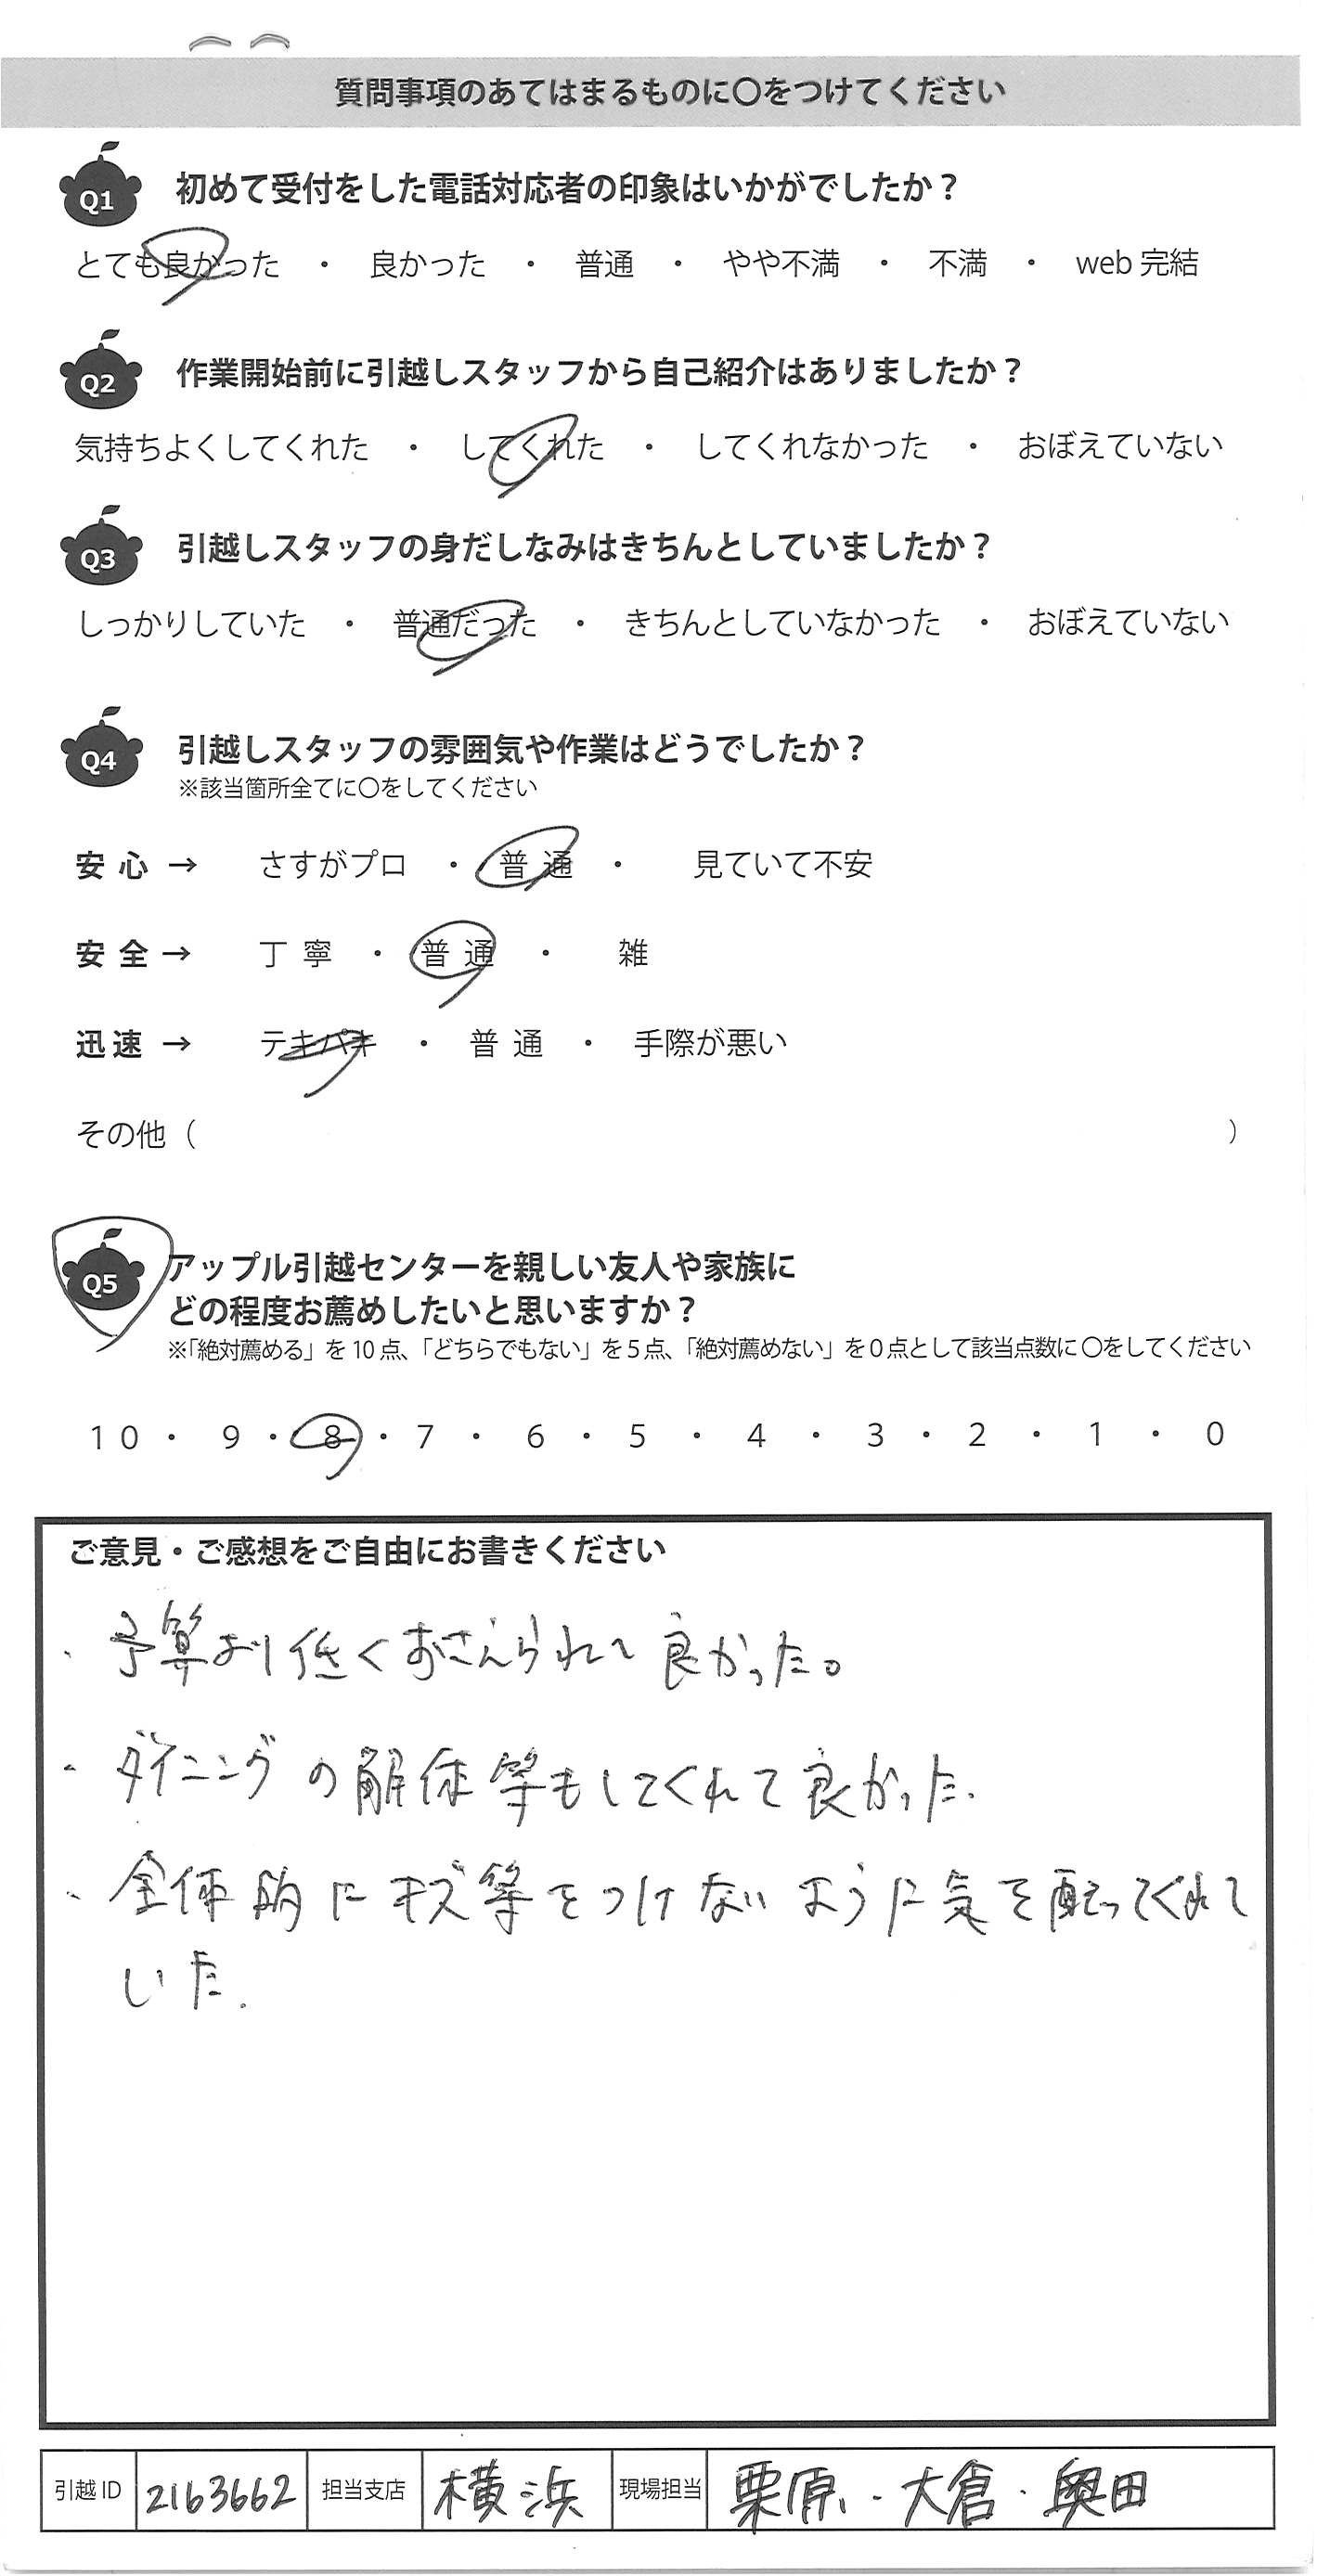 質問事項のあてはまるものに〇をつけてください
Q1 初めて受付をした電話対応者の印象はいかがでしたか？
とても良かった ・ 良かった ・ 普通 ・ やや不満 ・ 不満 ・ web 完結
Q2 作業開始前に引越しスタッフから自己紹介はありましたか？
気持ちよくしてくれた ・ してくれた ・ してくれなかった ・ おぼえていない
Q3 引越しスタッフの身だしなみはきちんとしていましたか？
しっかりしていた ・ 普通だった ・ きちんとしていなかった ・ おぼえていない
Q4 引越しスタッフの雰囲気や作業はどうでしたか？
※該当箇所全てに〇をしてください
安心 → さすがプロ ・ 普通 ・ 見ていて不安
安全 → 丁寧 ・ 普通 ・ 雑
迅速 → テキパキ ・ 普通 ・ 手際が悪い
その他（ ）
Q5 アップル引越センターを親しい友人や家族に
どの程度お薦めしたいと思いますか？
※「絶対薦める」を10点、「どちらでもない」を5点、「絶対薦めない」を0点として該当点数に〇をしてください
10 ・ 9 ・ 8 ・ 7 ・ 6 ・ 5 ・ 4 ・ 3 ・ 2 ・ 1 ・ 0
ご意見・ご感想をご自由にお書きください
・予算より低くおさえられて良かった。
・ダイニングの解体等もしてくれて良かった.
・全体的にキズ等をつけないように気を配ってくれて
いた.
引越ID 2163662 担当支店 横浜 現場担当 栗原・大倉・奥田